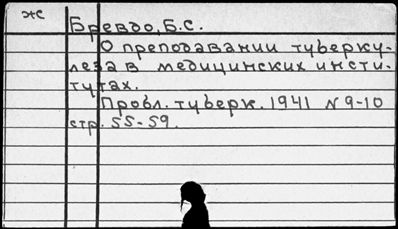 жс
Бревдо, Б.С.
О преподавании туберку-
леза в медицинских инсти-
тутах.
Пробл. туберк. 1941 N 9-10
стр. 55-59.